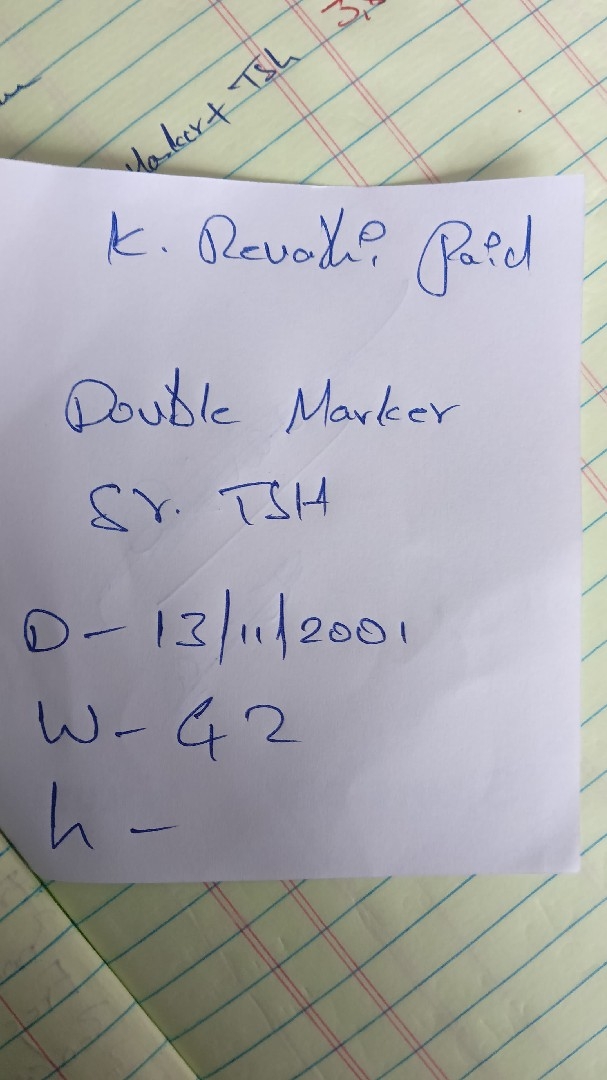 Marker + TSh
K. Revathi Paid
Double Marker
Sr. TSH
D - 13/11/2001
W - 42
h -